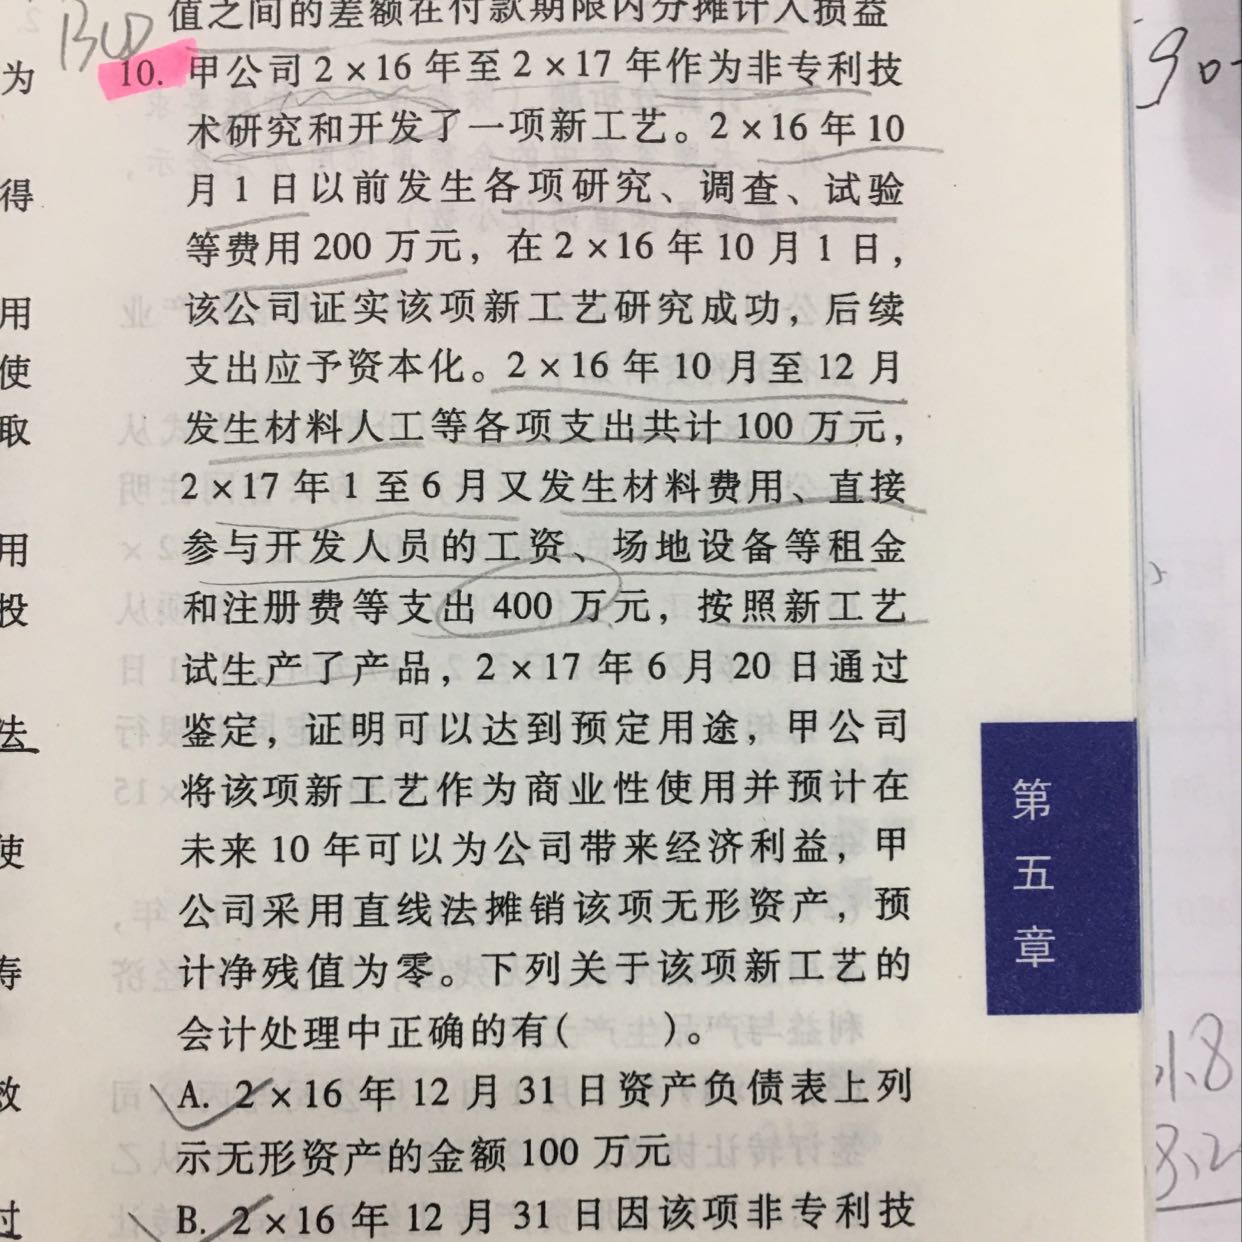 值之间的差额在付款期限内分摊计入损益
BCD
10. 甲公司 2×16 年至 2×17 年作为非专利技
术研究和开发了一项新工艺。2×16 年 10
月 1 日以前发生各项研究、调查、试验
等费用 200 万元，在 2×16 年 10 月 1 日，
该公司证实该项新工艺研究成功，后续
支出应予资本化。2×16 年 10 月至 12 月
发生材料人工等各项支出共计 100 万元，
2×17 年 1 至 6 月又发生材料费用、直接
参与开发人员的工资、场地设备等租金
和注册费等支出 400 万元，按照新工艺
试生产了产品，2×17 年 6 月 20 日通过
鉴定，证明可以达到预定用途，甲公司
将该项新工艺作为商业性使用并预计在
未来 10 年可以为公司带来经济利益，甲
公司采用直线法摊销该项无形资产，预
计净残值为零。下列关于该项新工艺的
会计处理中正确的有(　　)。
A. 2×16 年 12 月 31 日资产负债表上列
示无形资产的金额 100 万元
B. 2×16 年 12 月 31 日因该项非专利技
为
得
用
使
取
用
投
法
使
寿
效
过
第
五
章
90